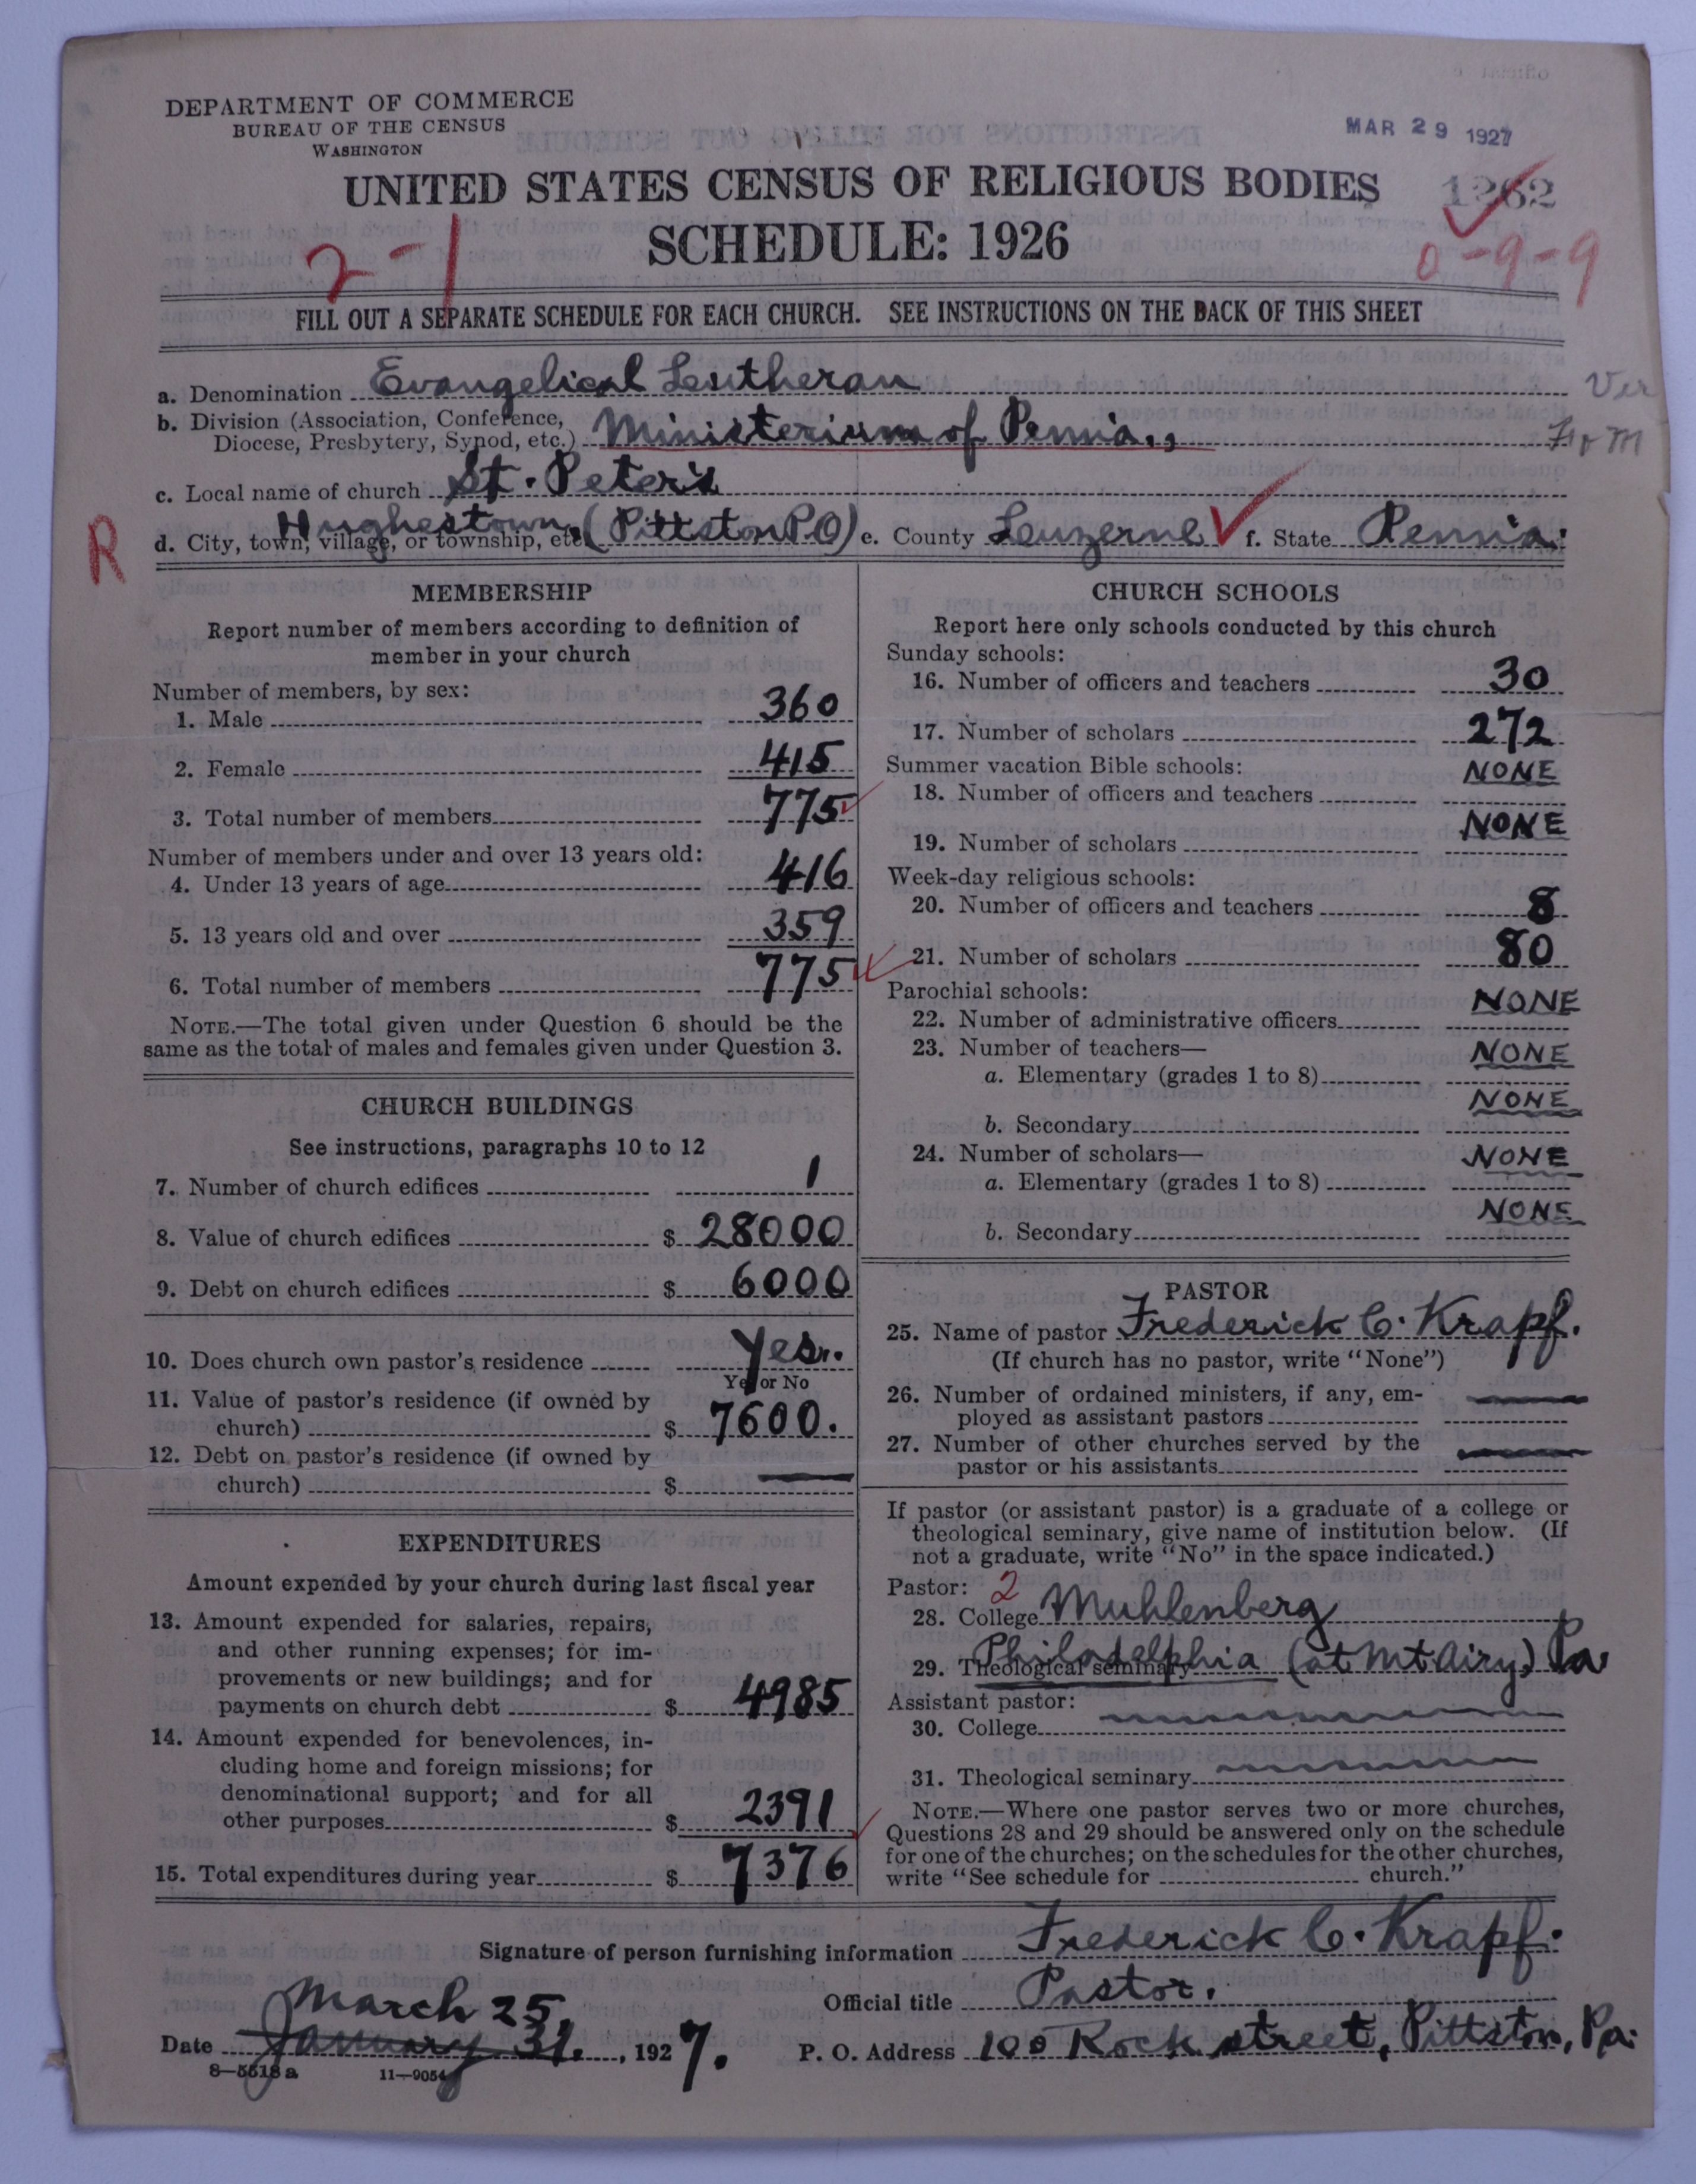 DEPARTMENT OF COMMERCE
BUREAU OF THE CENSUS
WASHINGTON
MAR 29 1927
UNITED STATES CENSUS OF RELIGIOUS BODIES
1262
SCHEDULE: 1926
2-1
0-9-9
FILL OUT A SEPARATE SCHEDULE FOR EACH CHURCH. SEE INSTRUCTIONS ON THE BACK OF THIS SHEET
a. Denomination Evangelical Lutheran
b. Division (Association, Conference, Diocese, Presbytery, Synod, etc.) Ministerium of Penna.,
c. Local name of church St. Peter's
R
d. City, town, village, or township, etc. Hughestown, (Pittston P.O) e. County Leuzerne f. State Penn'a.
MEMBERSHIP
Report number of members according to definition of
member in your church
Number of members, by sex:
1. Male 360
2. Female 415
3. Total number of members 775
Number of members under and over 13 years old:
4. Under 13 years of age 416
5. 13 years old and over 359
6. Total number of members 775
NOTE.—The total given under Question 6 should be the
same as the total of males and females given under Question 3.
CHURCH BUILDINGS
See instructions, paragraphs 10 to 12
7. Number of church edifices 1
8. Value of church edifices $ 28000
9. Debt on church edifices $ 6000
10. Does church own pastor's residence Yes.
Yes or No
11. Value of pastor's residence (if owned by
church) $ 7600.
12. Debt on pastor's residence (if owned by
church) $ —
EXPENDITURES
Amount expended by your church during last fiscal year
13. Amount expended for salaries, repairs,
and other running expenses; for im-
provements or new buildings; and for
payments on church debt $ 4985
14. Amount expended for benevolences, in-
cluding home and foreign missions; for
denominational support; and for all
other purposes $ 2391
15. Total expenditures during year $ 7376
CHURCH SCHOOLS
Report here only schools conducted by this church
Sunday schools:
16. Number of officers and teachers 30
17. Number of scholars 272
Summer vacation Bible schools:
18. Number of officers and teachers NONE
19. Number of scholars NONE
Week-day religious schools:
20. Number of officers and teachers 8
21. Number of scholars 80
Parochial schools:
22. Number of administrative officers NONE
23. Number of teachers—
a. Elementary (grades 1 to 8) NONE
b. Secondary NONE
24. Number of scholars—
a. Elementary (grades 1 to 8) NONE
b. Secondary NONE
PASTOR
25. Name of pastor Frederick C. Krapf.
(If church has no pastor, write "None")
26. Number of ordained ministers, if any, em-
ployed as assistant pastors —
27. Number of other churches served by the
pastor or his assistants —
If pastor (or assistant pastor) is a graduate of a college or
theological seminary, give name of institution below. (If
not a graduate, write "No" in the space indicated.)
Pastor: 2
28. College Muhlenberg
29. Theological seminary Philadelphia (at Mt Airy) Pa
Assistant pastor:
30. College
31. Theological seminary
NOTE.—Where one pastor serves two or more churches,
Questions 28 and 29 should be answered only on the schedule
for one of the churches; on the schedules for the other churches,
write "See schedule for church."
Signature of person furnishing information Frederick C. Krapf.
Official title Pastor.
March 25,
Date January 31, 1927.
P. O. Address 100 Rock street, Pittston, Pa.
8—5518 a 11—9054